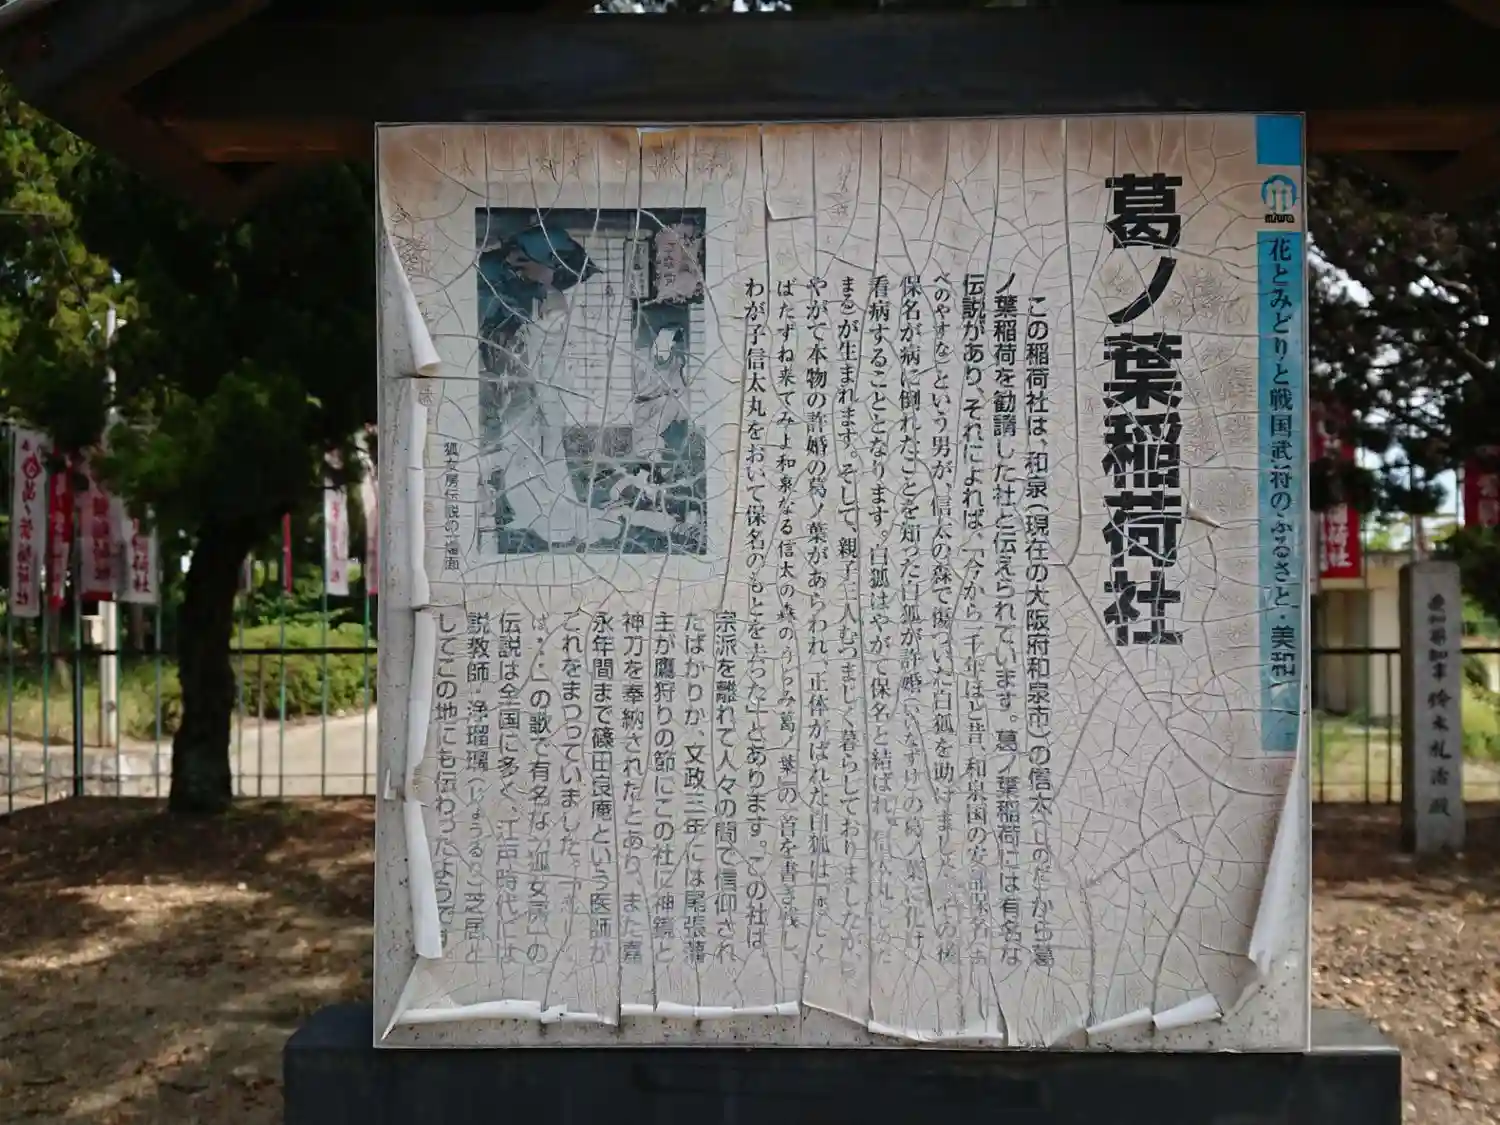 葛ノ葉稲荷社
花とみどりと戦国武将のふるさと・美和
この稲荷社は、和泉(現在の大阪府和泉市)の信太(しのだ)から葛
ノ葉稲荷を勧請した社と伝えられています。葛ノ葉稲荷には有名な
伝説があり、それによれば、「今から一千年ほど昔、和泉国の安部保名(あ
べのやすな)という男が、信太の森で傷ついた白狐を助けました。その後
保名が病に倒れたことを知った白狐が許婚(いいなずけ)の葛ノ葉に化け
看病することとなります。白狐はやがて保名と結ばれ、信太丸(しのだ
まる)が生まれます。そして、親子三人むつまじく暮らしておりましたが、
やがて本物の許婚の葛ノ葉があらわれ、正体がばれた白狐は『恋しく
ばたずね来てみよ和泉なる信太の森のうらみ葛ノ葉』の一首を書き残し、
わが子信太丸をおいて保名のもとを去った」とあります。この社は、
宗派を離れて人々の間で信仰され
たばかりか、文政三年には尾張藩
主が鷹狩りの節にこの社に神鏡と
神刀を奉納されたとあり、また嘉
永年間まで篠田良庵という医師が
これをまつっていました。
ば…」の歌で有名な「狐女房」の
伝説は全国に多く、江戸時代には
説教師・浄瑠璃(じょうるり)芝居と
してこの地にも伝わったようです。
狐女房伝説の一場面
愛知県知事鈴木礼治殿